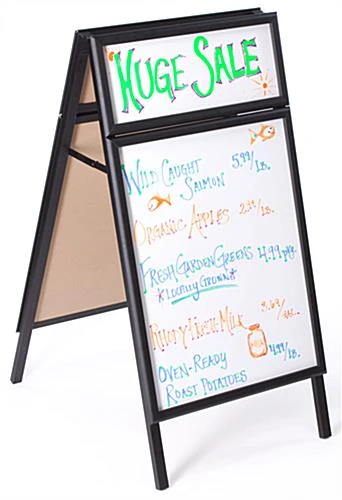 HUGE SALE
WILD CAUGHT 5.99/LB.
SALMON
ORGANIC APPLES 2.99/LB.
FRESH GARDEN GREENS 4.99 pkg.
*LOCALLY GROWN*
MILK 3.69/GAL.
MILK
OVEN-READY 4.99/LB.
ROAST POTATOES